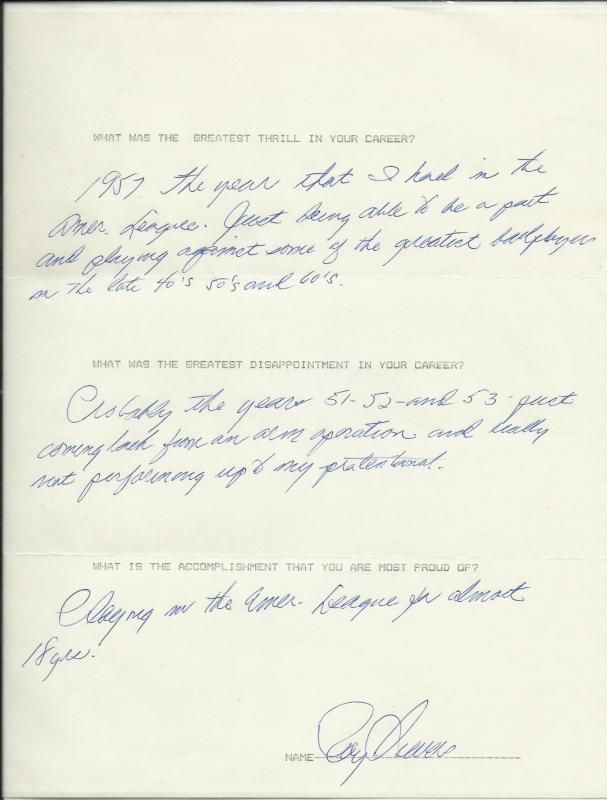 WHAT WAS THE GREATEST THRILL IN YOUR CAREER?
1957. The year that I had in the
Amer. League. Just being able to be a part
and playing against some of the greatest ballplayers
in the late 40's 50's and 60's.
WHAT WAS THE GREATEST DISAPPOINTMENT IN YOUR CAREER?
Probably the years 51-52-and 53- just
coming back from an arm operation and really
not performing up to my
WHAT IS THE ACCOMPLISHMENT THAT YOU ARE MOST PROUD OF?
Playing in the Amer. League for almost
18 yrs.
NAME Roy Sievers